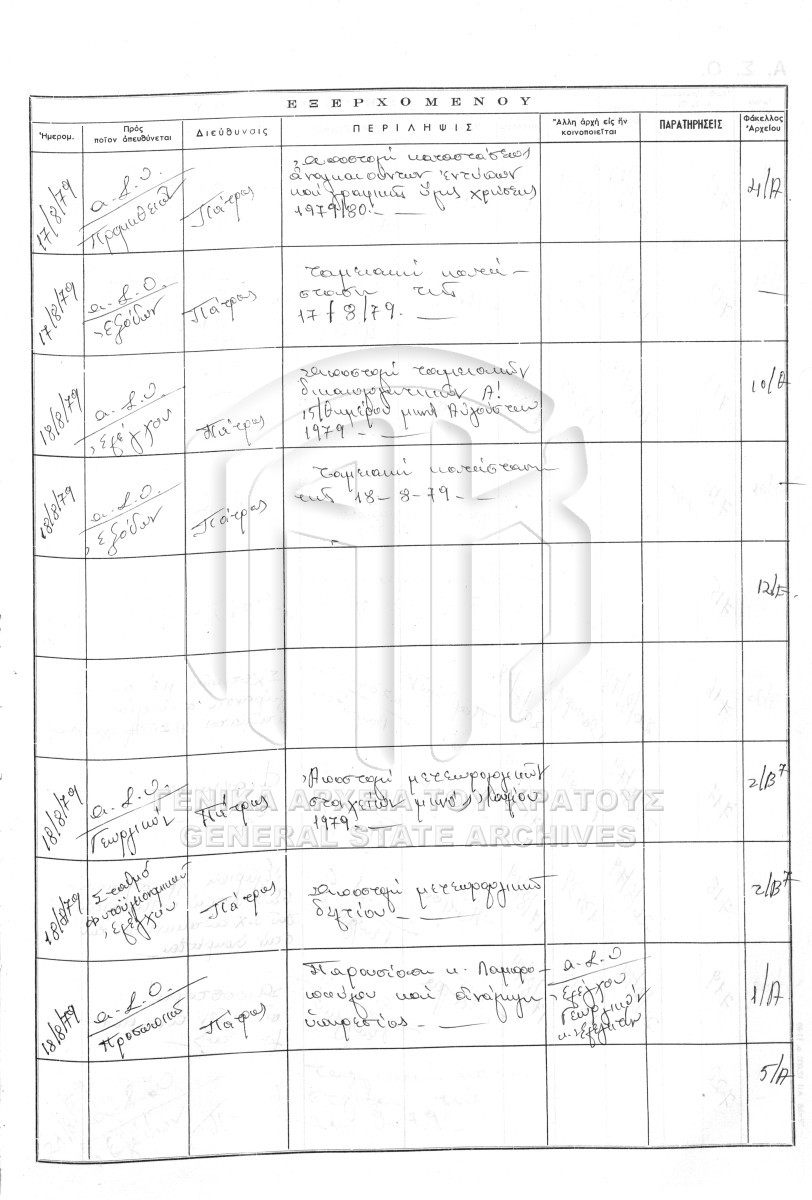 ΕΞΕΡΧΟΜΕΝΟΥ
Ἡμερομ. Πρὸς ποῖον ἀπευθύνεται Διεύθυνσις ΠΕΡΙΛΗΨΙΣ Ἄλλη ἀρχὴ εἰς ἣν κοινοποιεῖται ΠΑΡΑΤΗΡΗΣΕΙΣ Φάκελλος Ἀρχείου
17/8/79 α.Σ.Ο. Προμηθειῶν Πάτρας Ἀποστολή καταστάσεως
ἀναγκαιούντων ἐντύπων
καί γραφικῆς ὕλης χρήσεως
1979/80. 4/Α
17/8/79 α.Σ.Ο. Ἐξόδων Πάτρας Ταμειακή κατά-
σταση τῆς
17/8/79.
18/8/79 α.Σ.Ο. Ἐλέγχου Πάτρας Ἀποστολή ταμειακῶν
δικαιολογητικῶν Α!
15/θημέρου μηνός Αὐγούστου
1979 10/Θ
18/8/79 α.Σ.Ο. Ἐξόδων Πάτρας Ταμειακή κατάσταση
τῆς 18-8-79.
12/Ε
18/8/79 α.Σ.Ο. Γεωργικόν Πάτρας Ἀποστολή μετεωρολογικῶν
στοιχείων μηνός
1979. 2/Β7
ΓΕΝΙΚΑ ΑΡΧΕΙΑ ΤΟΥ ΚΡΑΤΟΥΣ
GENERAL STATE ARCHIVES
18/8/79 Σταθμό Φυτοϋγειονομικοῦ Ἐλέγχου Πάτρας Ἀποστολή μετεωρολογικοῦ
δελτίου 2/Β7
18/8/79 α.Σ.Ο. Προσωπικοῦ Πάτρας Παρουσίαση κ. Λαμπρο-
πούλου καί ἀνάληψη
ὑπηρεσίας α.Σ.Ο
Ἐλέγχου
Γεωργικόν 1/Α
5/Α